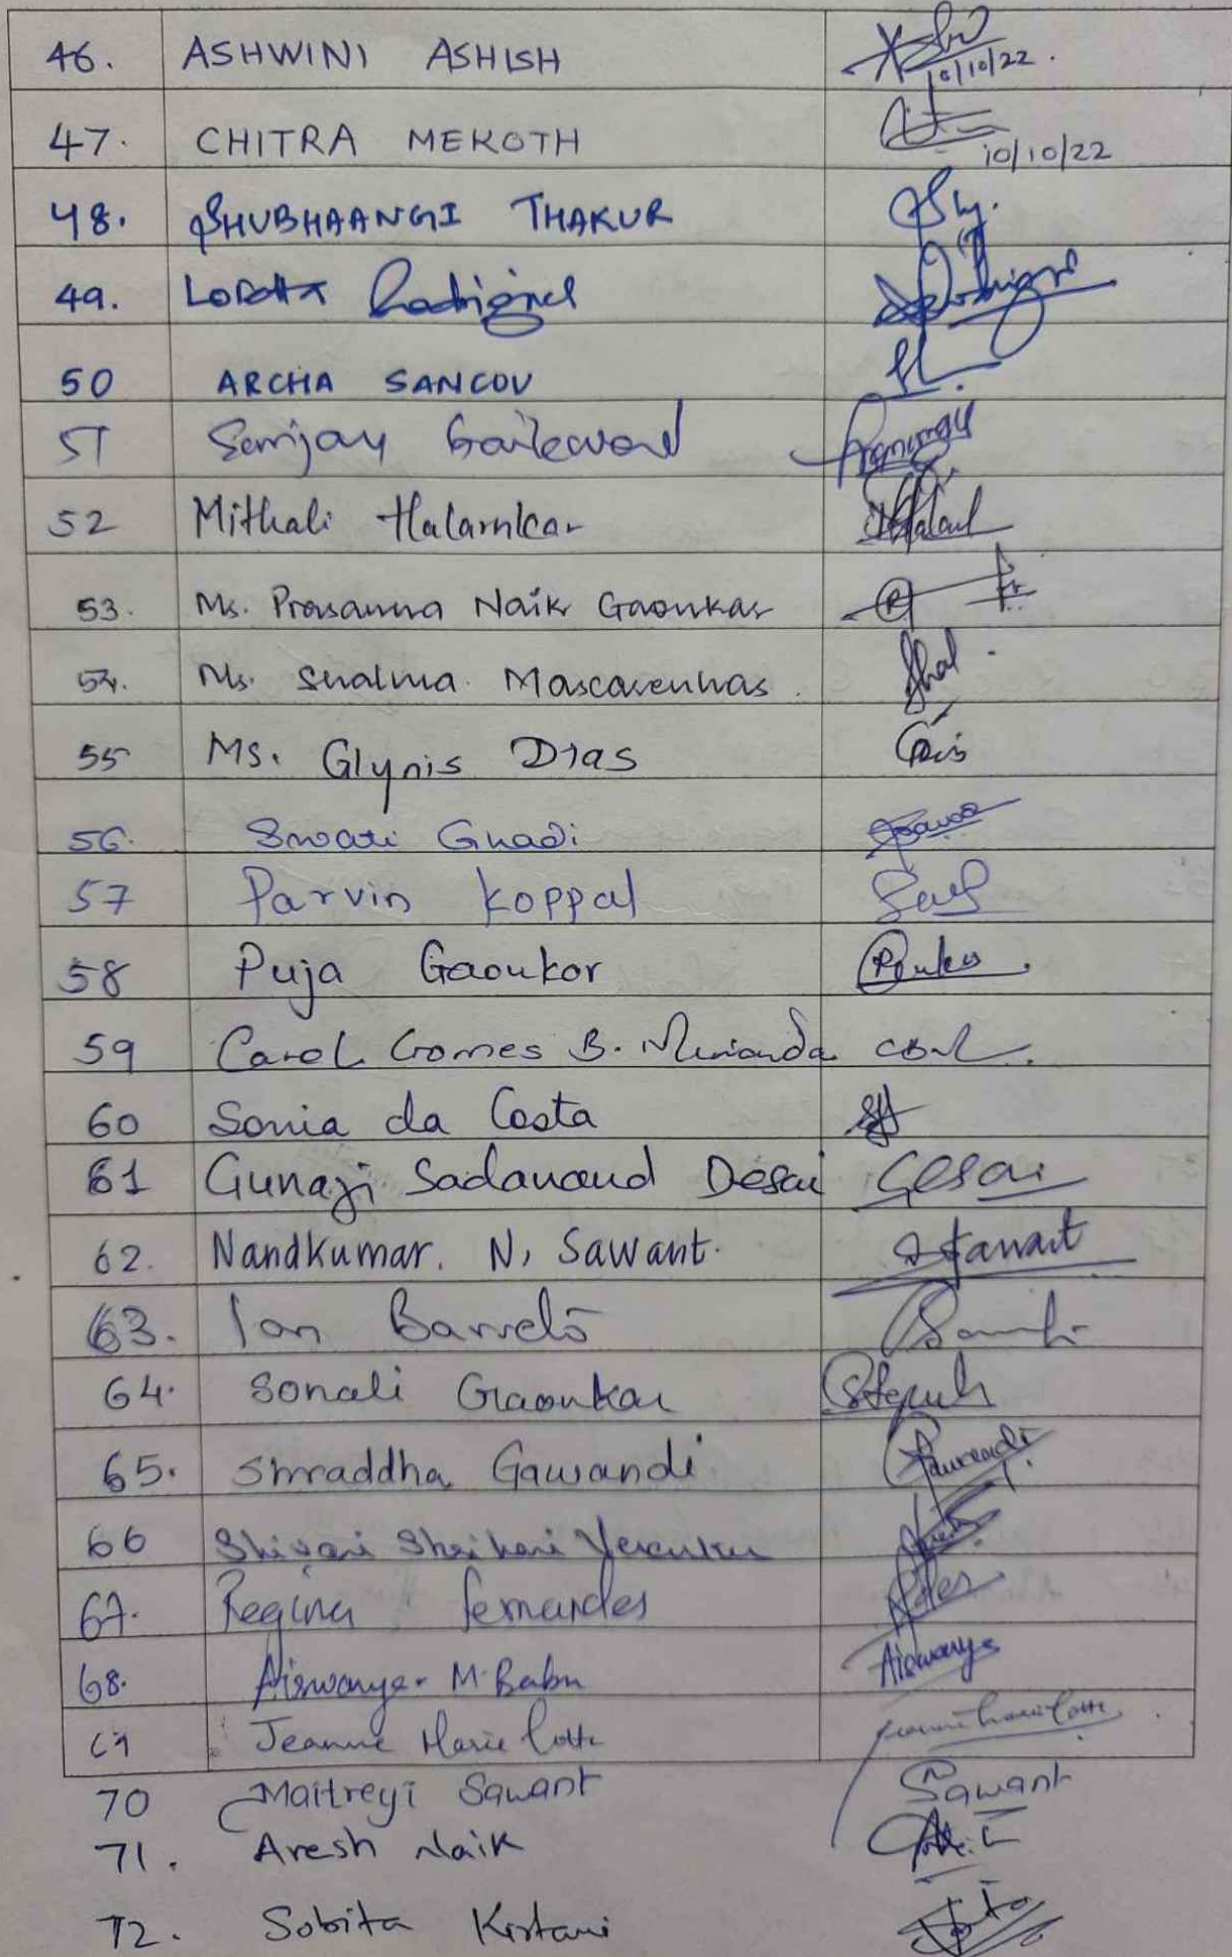 46. ASHWINI ASHISH 10/10/22.
47. CHITRA MEKOTH 10/10/22
48. SHUBHAANGI THAKUR
49. Loretta Rodrigues
50 ARCHA SANCOV
51 Sanjay Gaikwad
52 Mithali Halarnkar
53. Ms. Prasanna Naik Gaonkar
54. Ms. Shalma Mascarenhas
55 Ms. Glynis Dias
56. Swati Ghadi
57 Parvin Koppal
58 Puja Gaonkor
59 Carol Gomes B. Miranda
60 Sonia da Costa
61 Gunaji Sadanand Desai Desai
62. Nandkumar. N, Sawant. Sawant
63. Ian Barreto
64. Sonali Gaonkar
65. Shraddha Gawandi
66 Shivani
67. Regina fernandes
68. Aiswarya M. Babu Aiswarya
69 Jeanne Marie
70 Maitreyi Sawant Sawant
71. Aresh Naik
72. Sobita